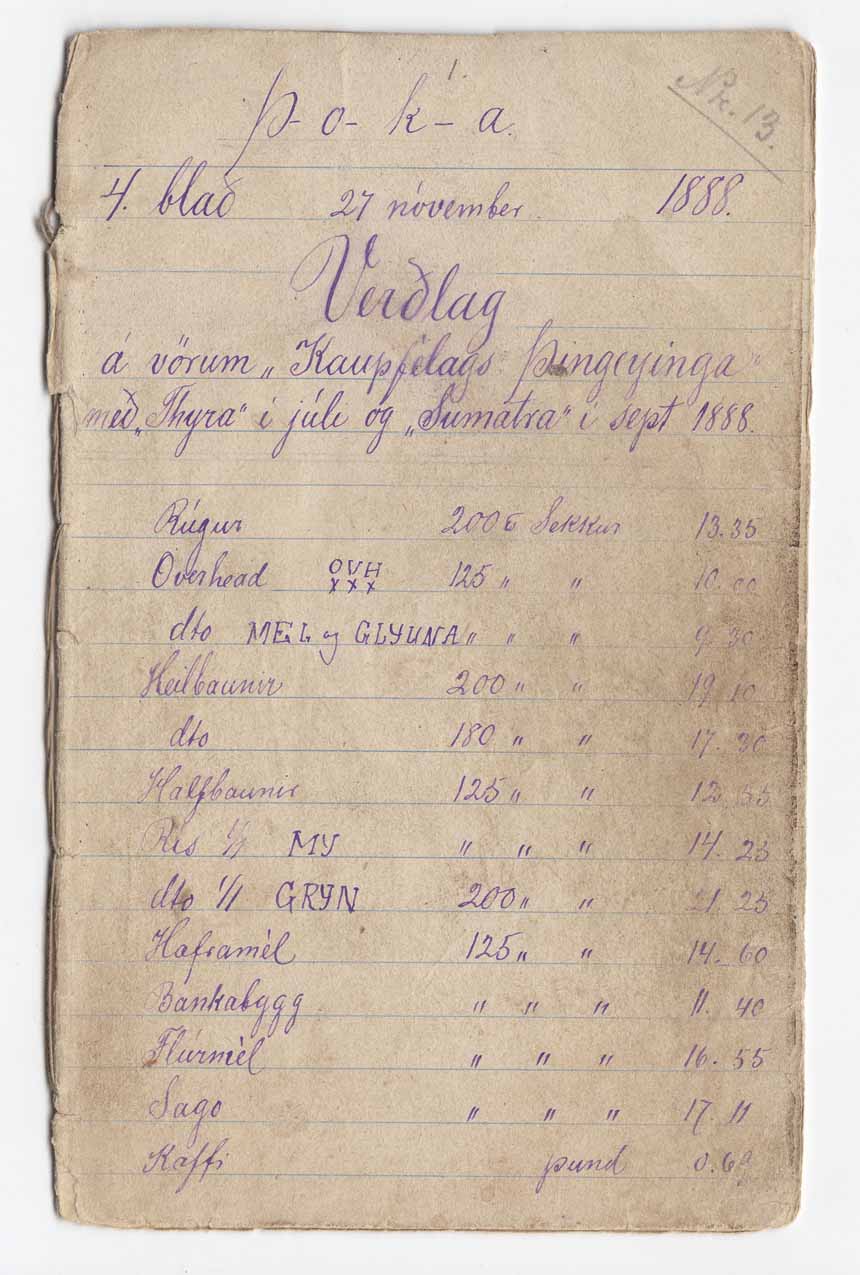 Nr. 13.
Þ-o-k-a.
4. blað 27 nóvember 1888.
Verðlag
á vörum „Kaupfélags Þingeyinga"
með „Thyra" í júlí og „Sumatra" í sept 1888.
Rúgur 200 ℔ Sekkur 13.35
Overhead OVH xxx 125 " " 10.00
dto MEL og GLYUNA " " " 9.30
Heilbaunir 200 " " 19.10
dto 180 " " 17.30
Halfbaunir 125 " " 12.55
Ris 1/1 MY " " " 14.25
dto 1/1 GRYN 200 " " 21.25
Haframél 125 " " 14.60
Bankabygg " " " 11.40
Flúrmél " " " 16.55
Sago " " " 17. "
Kaffi pund